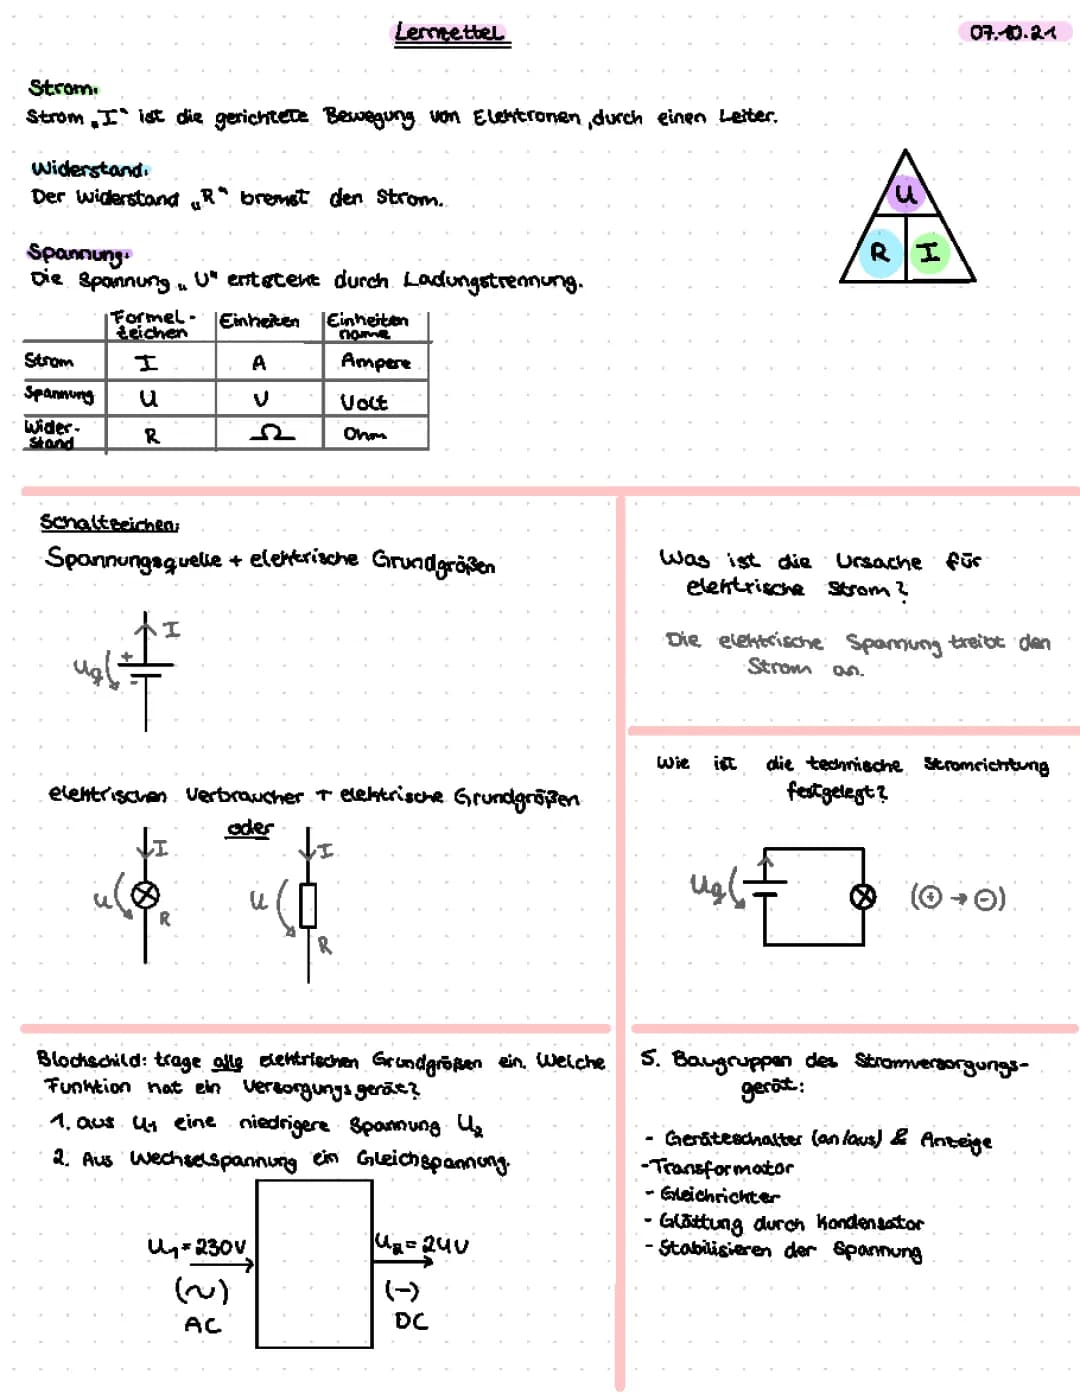 Lernzettel
07.10.21
Strom:
Strom „I“ ist die gerichtete Bewegung von Elektronen, durch einen Leiter.
Widerstand:
Der Widerstand „R“ bremst den Strom.
U
R I
Spannung:
Die Spannung „U“ entsteht durch Ladungstrennung.
Formel-zeichen Einheiten Einheitenname
Strom I A Ampere
Spannung U V Volt
Wider-stand R Ω Ohm
Schaltzeichen:
Spannungsquelle + elektrische Grundgrößen
I
Uq + -
elektrischen Verbraucher + elektrische Grundgrößen
oder
I I
U U
R R
Was ist die Ursache für
elektrische Strom?
Die elektrische Spannung treibt den
Strom an.
Wie ist die technische Stromrichtung
festgelegt?
Uq (+ → -)
Blockschild: trage alle elektrischen Grundgrößen ein. Welche
Funktion hat ein Versorgungsgerät?
1. aus U1 eine niedrigere Spannung U2
2. Aus Wechselspannung ein Gleichspannung.
U1 = 230V U2 = 24V
(~) (-)
AC DC
5. Baugruppen des Stromversorgungs-
gerät:
- Geräteschalter (an/aus) & Anzeige
- Transformator
- Gleichrichter
- Glättung durch Kondensator
- Stabilisieren der Spannung